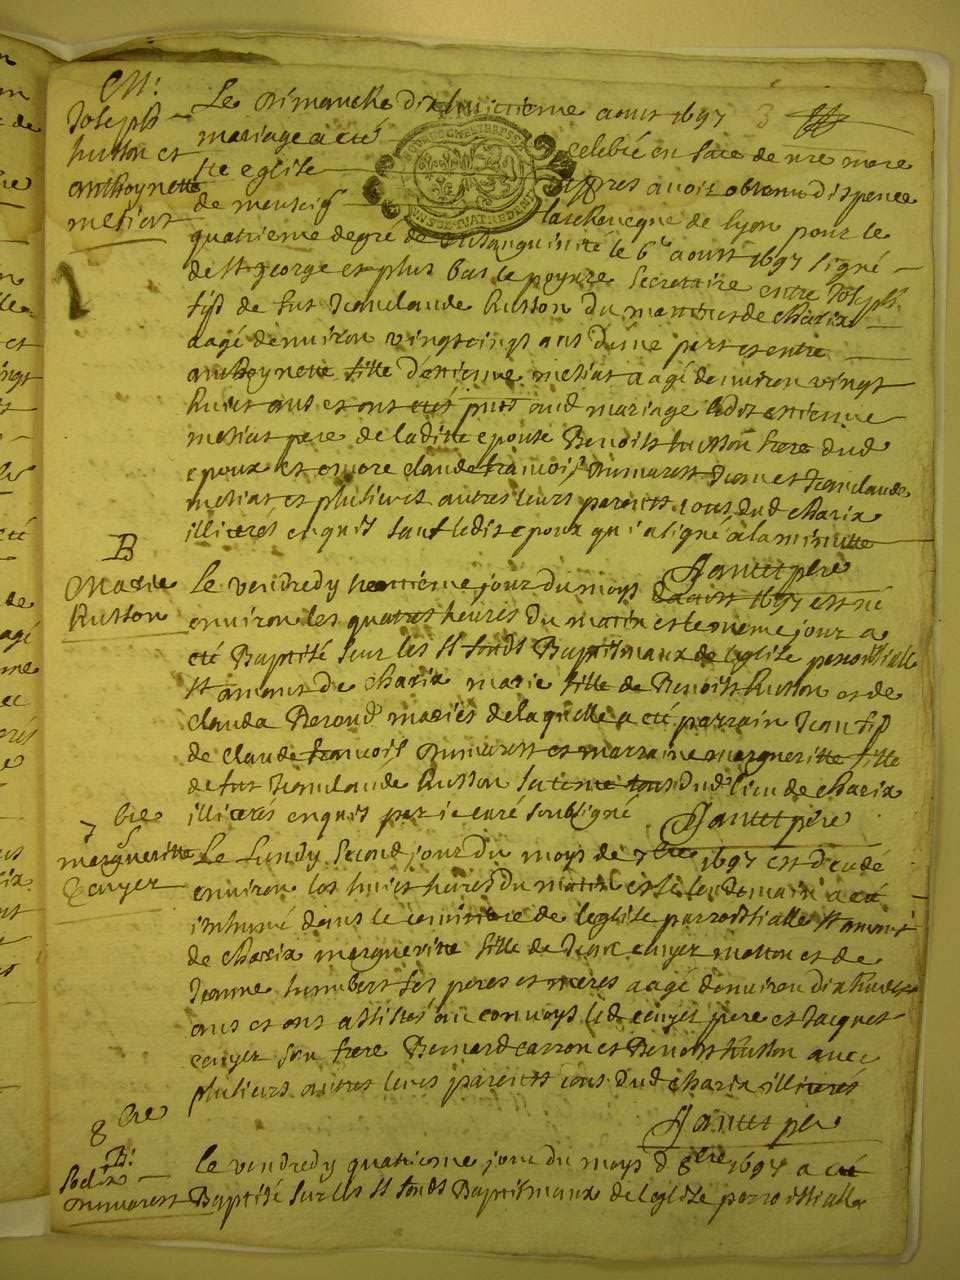 M:
Joseph
husson et
anthoynette
metias
Le dimanche dixhuictieme aoust 1697 3
mariage a eté celebré en face de nre mere
ste eglise apres avoir obtenu dispence
de monseigr larcheveque de lyon pour le
quatrieme degré de consanguinité le 6e aoust 1697 signé
de st george et plus bas le poyure secretaire entre Joseph
fils de fut Jeanclaude husson du de charix
aagé denviron vingtcinqs ans dune part et entre
anthoynette fille detienne metias aagé denviron vingt
huict ans et ont eté pnts aud mariage ledit estienne
metias pere de laditte epouse Benoist husson frere dud
epoux et encore claude francois Jean et Jeanclaude
metias et plusieurs autres leurs parents tous dud charix
illiterés enquis sauf ledit epoux qui a signé a la minutte
pbre
B
Marie
husson
Le vendredy trentieme jour du moys daoust 1697 est né
environ les quatres heures du matin et le meme jour a
eté Baptisé sur les st fonds Baptismaux de leglise parroissialle
st amant de charix marie fille de Benoist husson et de
clauda mariés de laquelle a eté parrain Jean fils
de claude francois et marraine margueritte fille
de fut Jeanclaude husson sa tante tous dud lieu de charix
illiterés enquis par je curé soubsigné pbre
7 bre
marguerite
Le Lundy second jour du moys de 7bre 1697 est decedé
environ les huict heures du matin et le lendemain a eté
inhumé dans le cimitiere de leglise parroissialle st amant
de charix marguerite fille de Jean et de
Jeanne humbert ses peres et meres aagé denviron dixhuict
ans et ont assistés au convoys led pere et Jacques
son frere Bernard carron et Benoist husson avec
plusieurs autres leurs parents tous dud charix illiterés
pbre
8 bre
B:
le vendredy quatrieme jour du moys d 8bre 1697 a eté
Baptisé sur les st fonds Baptismaux de leglise parroissialle